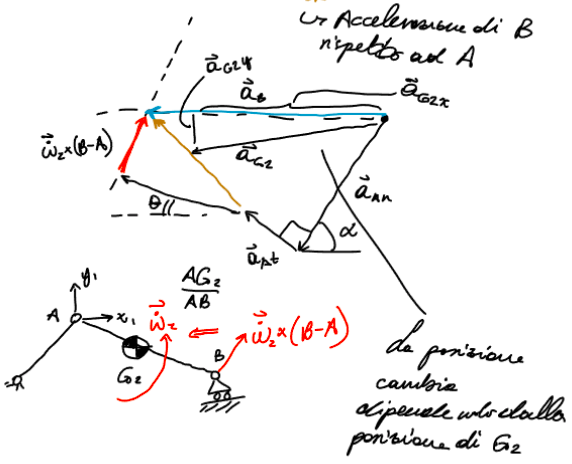 ↳ Accelerazione di B
rispetto ad A
a⃗_G2y
a⃗_B
a⃗_G2x
ω̇⃗₂×(B-A)
a⃗_G2
a⃗_An
θ
a⃗_At
α
AG₂/AB
y₁
A
x₁
ω̇⃗₂ ⇐ ω̇⃗₂×(B-A)
G₂
B
La posizione
cambia
dipende dalla
posizione di G₂